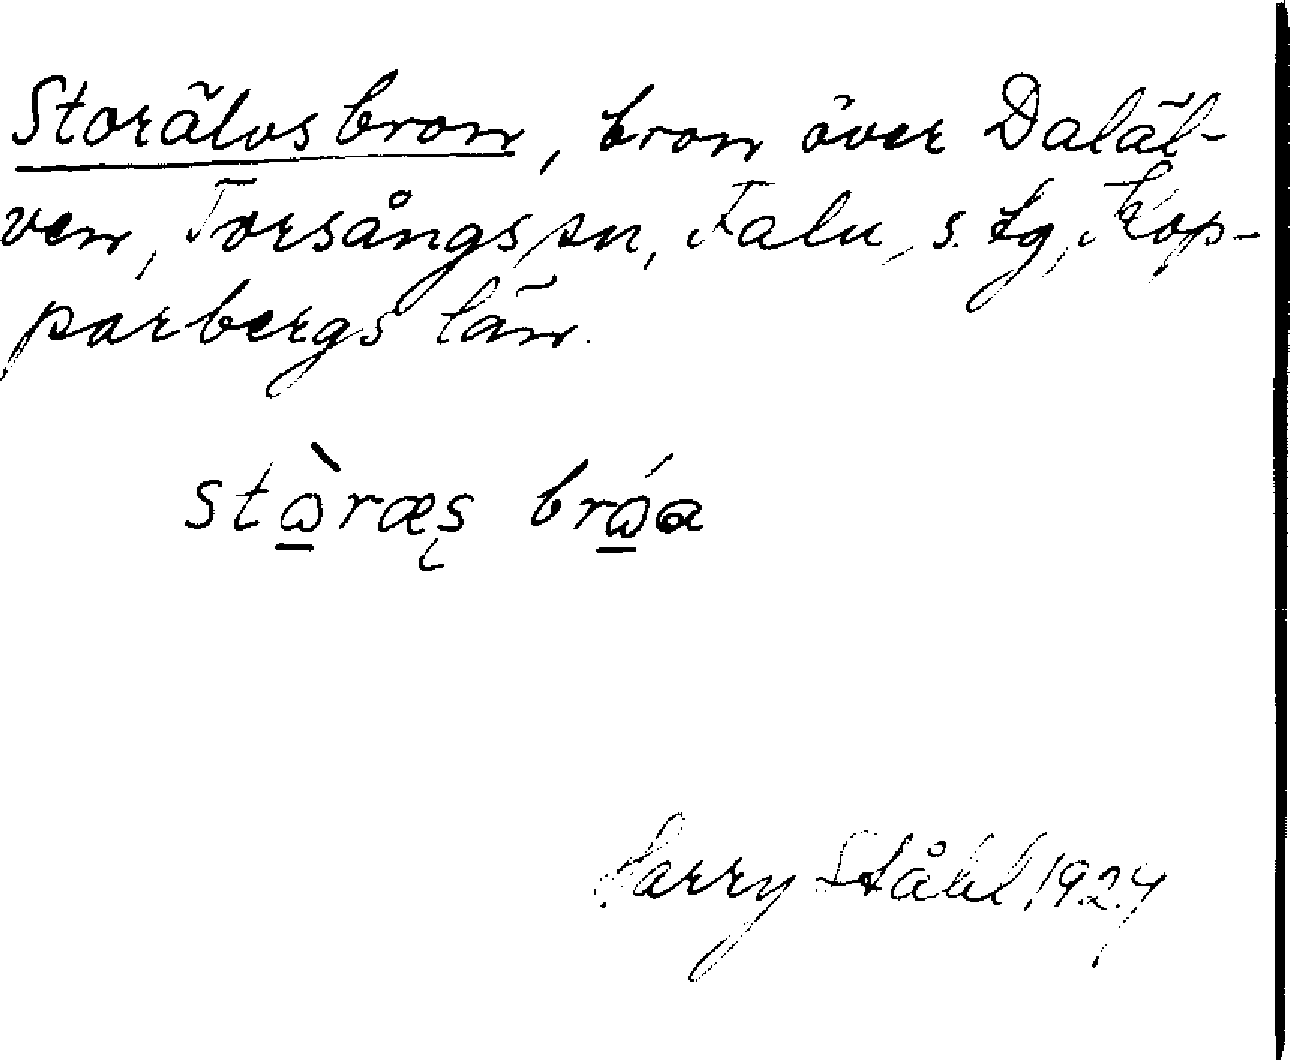 Storälvsbron, bron över Daläl-
ven, Torsångs sn, Falu s. tg, Kop-
parbergs län.
stὼ̲ræs̨ brώ̲a
Harry Ståhl 1924